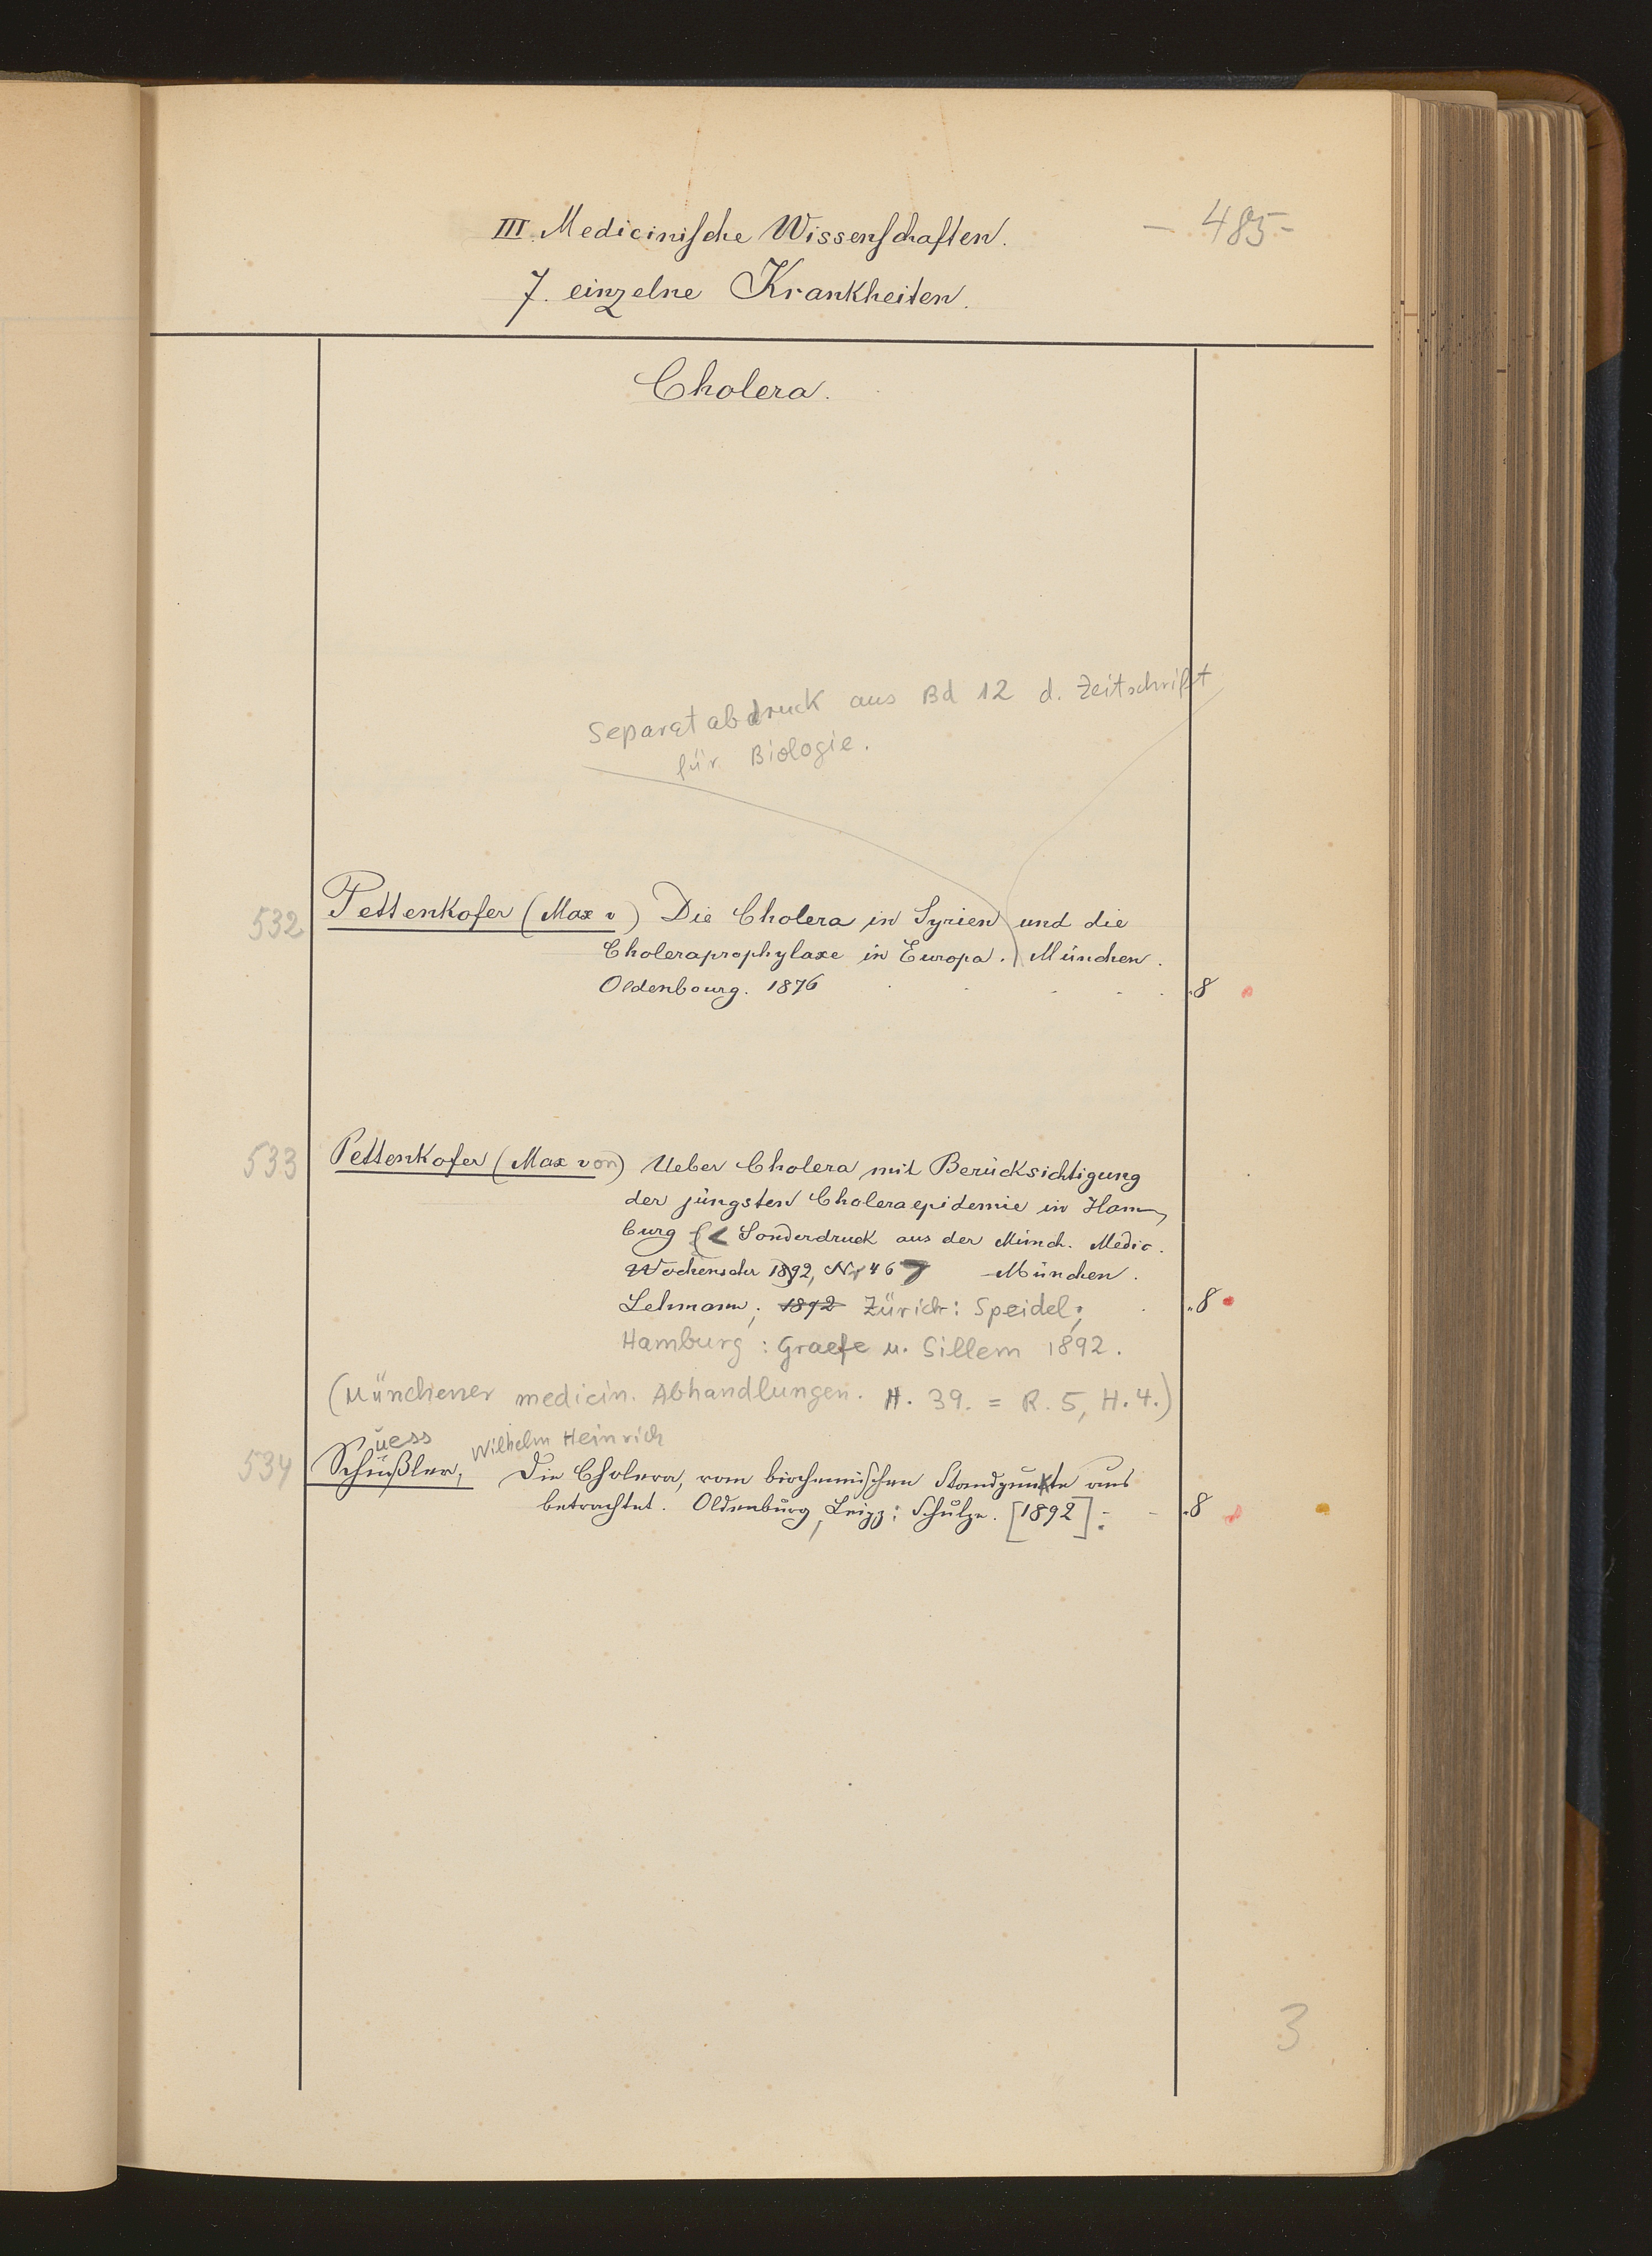 III. Medicinische Wissenschaften.
- 485-
7. einzelne Krankheiten.
Cholera.
Separatabdruck aus Bd 12 d. Zeitschrift
für Biologie.
532 Pettenkofer (Max v) Die Cholera in Syrien und die
Choleraprophylaxe in Europa. München.
Oldenbourg. 1876 . . . . . 8
533 Pettenkofer (Max von) Ueber Cholera mit Berücksichtigung
der jüngsten Choleraepidemie in Ham-
burg (< Sonderdruck aus der Münch. Medic.
Wochenschr 1892, Nr 46> München.
Lehmann; 1892 Zürich: Speidel; . 8
Hamburg: Graefe u. Sillem 1892.
(Münchener medicin. Abhandlungen. H. 39. = R. 5, H. 4.)
uess Wilhelm Heinrich
534 Schüßler, Die Cholera, vom biochemischen Standpunkte aus
betrachtet. Oldenburg, Leipz: Schulze. [1892]. - - 8
3